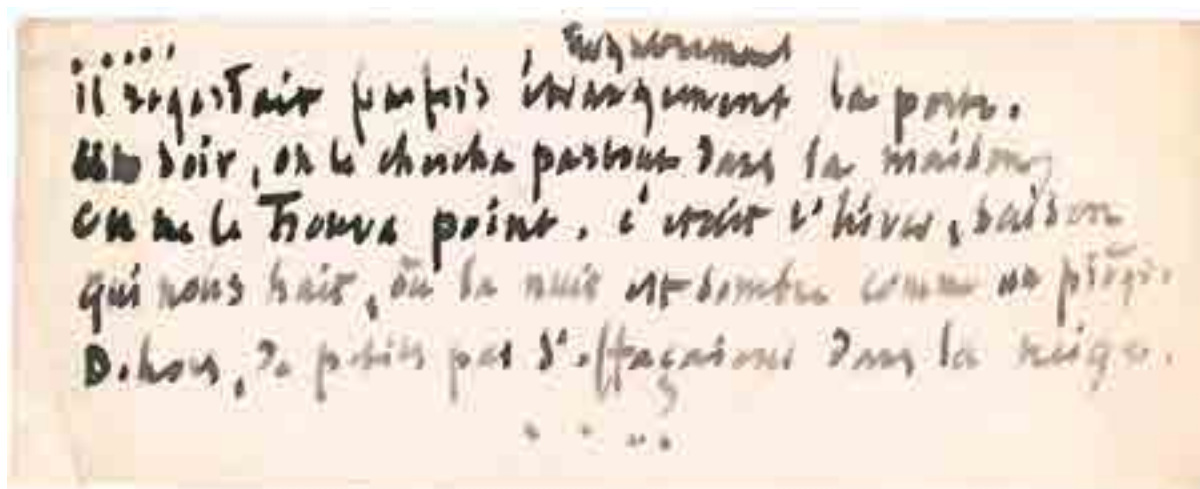 .....
il regardait parfois étrangement la porte.
un soir, on le chercha partout dans la maison,
on ne le trouva point. c'était l'hiver, saison
qui nous hait, où la nuit est sombre comme un piège.
Dehors, de petits pas s'effaçaient dans la neige.
....